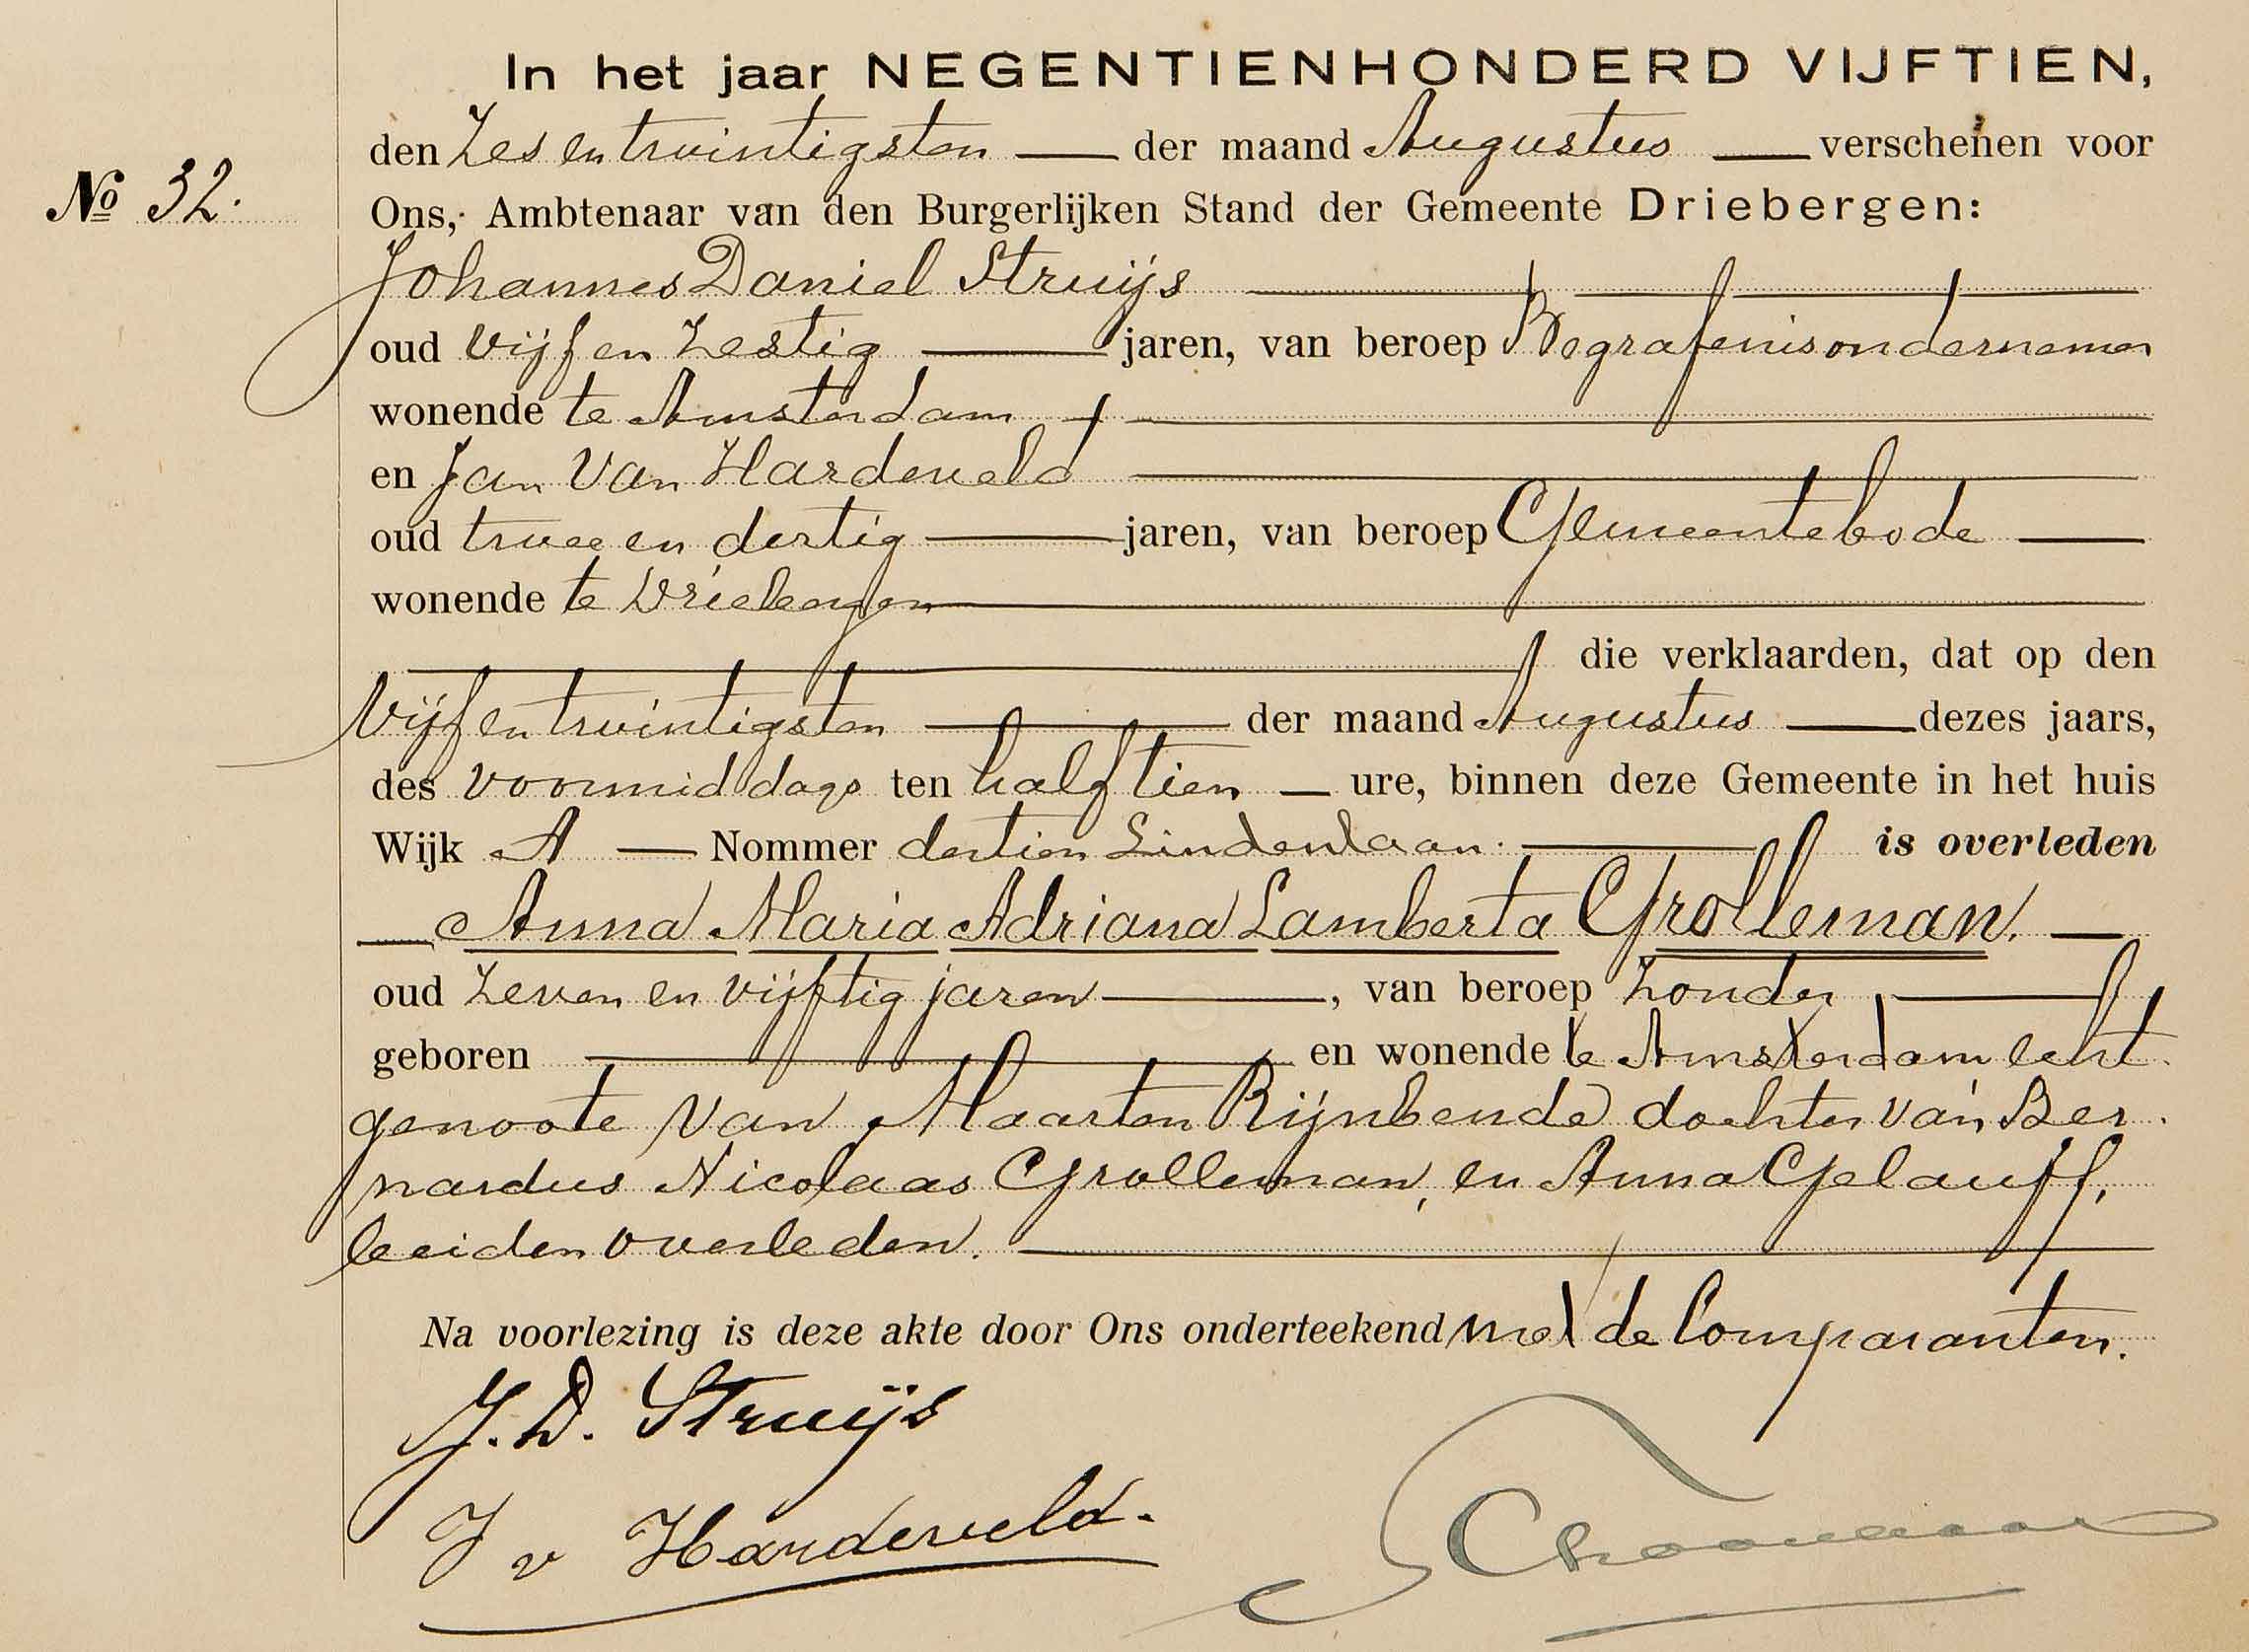 In het jaar NEGENTIENHONDERD VIJFTIEN,
den Zes en twintigsten — der maand Augustus — verschenen voor
No 32.
Ons, Ambtenaar van den Burgerlijken Stand der Gemeente Driebergen:
Johannes Daniel Struijs
oud Vijf en Zestig — jaren, van beroep Begrafenisondernemer
wonende te Amsterdam
en Jan Van Hardeveld
oud twee en dertig — jaren, van beroep Gemeentebode —
wonende te Driebergen
die verklaarden, dat op den
Vijf en twintigsten — der maand Augustus — dezes jaars,
des voormiddags ten half tien — ure, binnen deze Gemeente in het huis
Wijk A — Nommer dertien Lindenlaan. — is overleden
— Anna Maria Adriana Lamberta Grolleman. —
oud Zeven en vijftig jaren —, van beroep Zonder, —
geboren — en wonende te Amsterdam echt
genoote van Maarten Rijnbende dochter van Ber
nardus Nicolaas Grolleman, en Anna Gelauff,
beiden overleden. —
Na voorlezing is deze akte door Ons onderteekend met de Comparanten.
J. D. Struijs
J v Hardeveld.